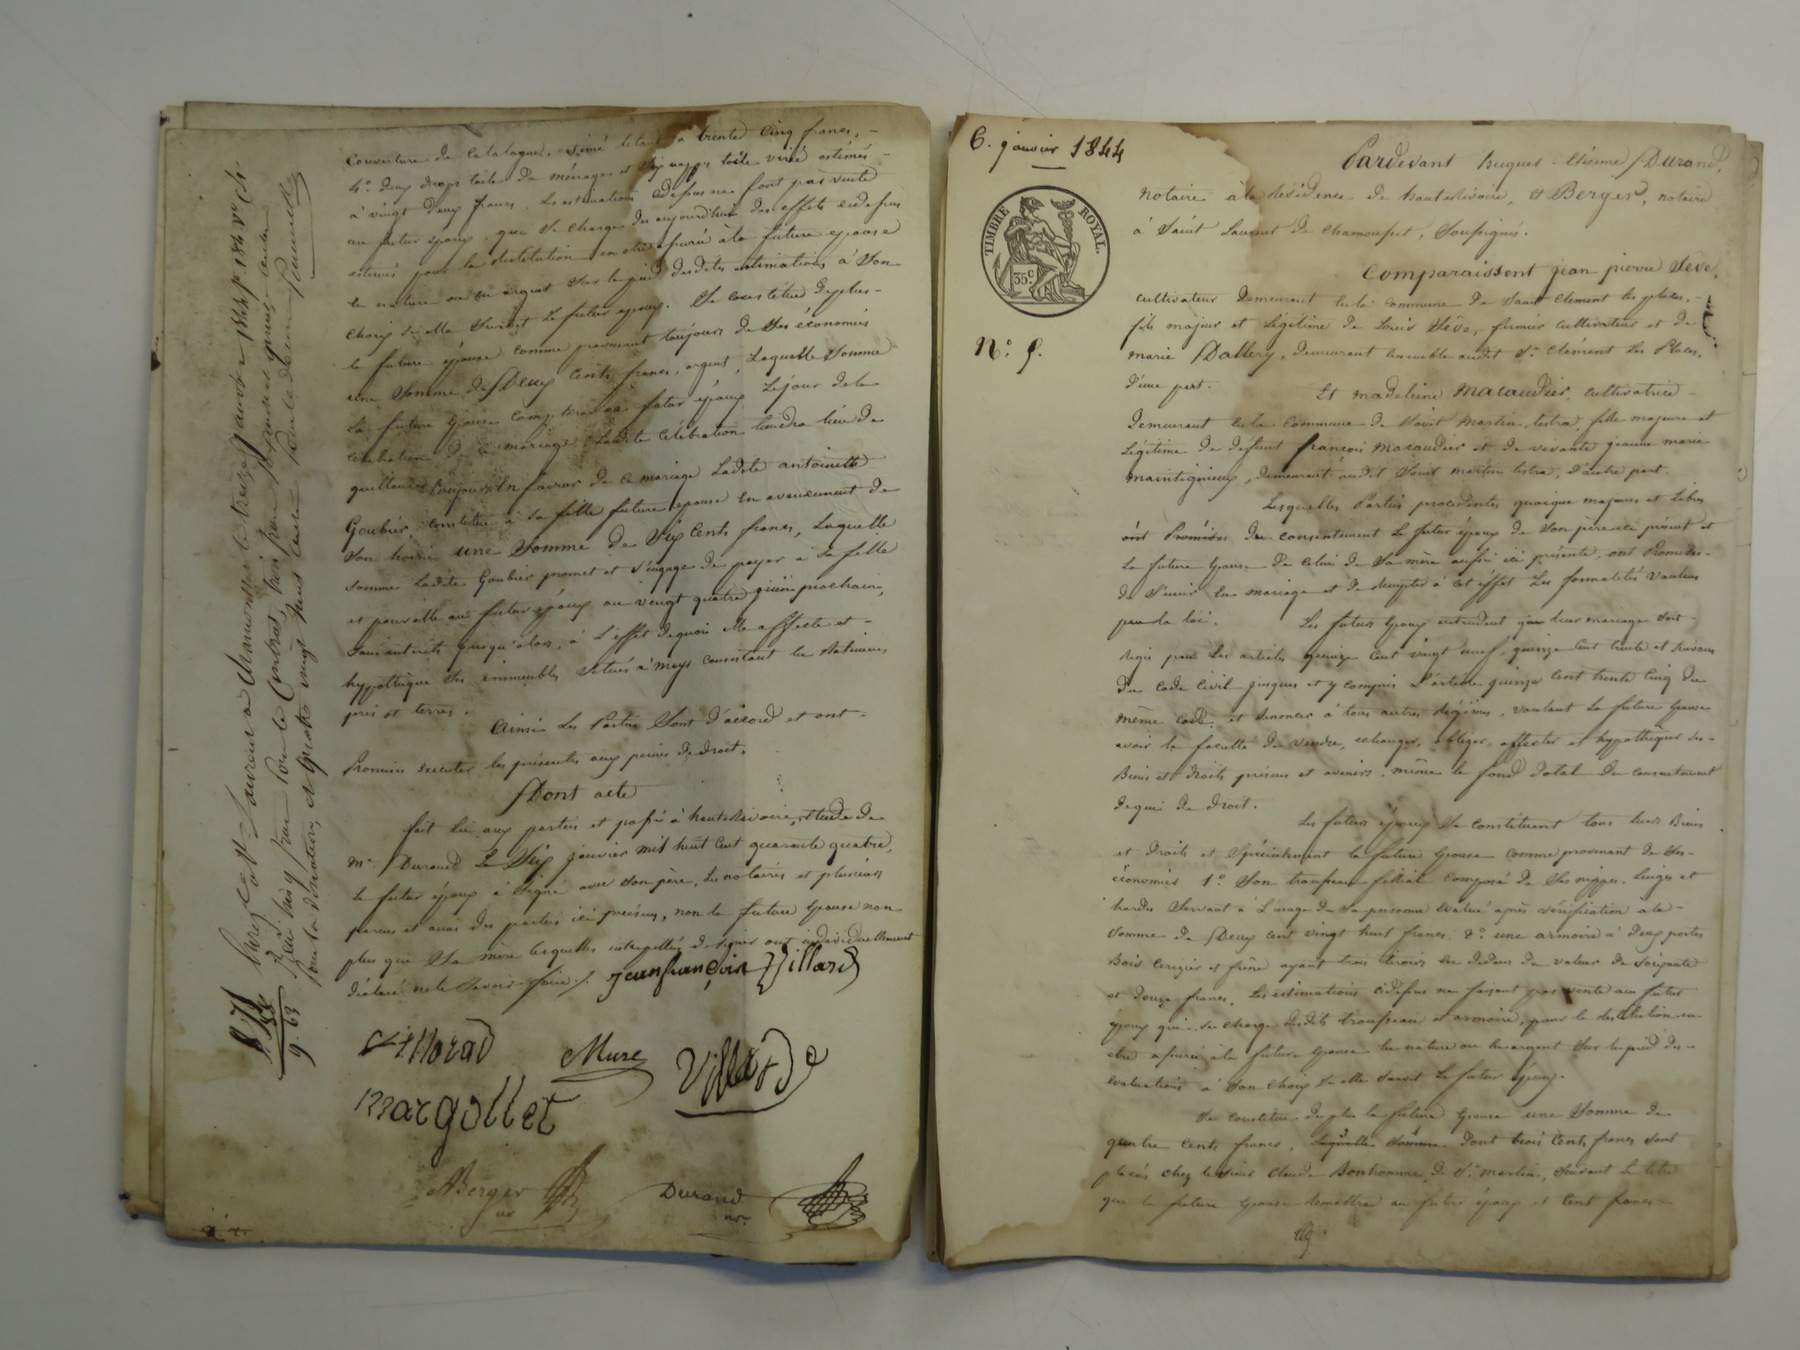 Couverture de Catalogne, estimé le tout à trente cinq francs, -
4° deux draps toile de ménage et six nappes toile virée estimés -
à vingt deux francs. Les estimations cidessus ne font pas vente
au futur époux, qui se charge dès aujourd'hui des effets cidessus
estimés pour la restitution en être assurée à la future épouse
en nature ou en argent sur le pied desdites estimations à son
choix si elle survit le futur époux. Se constitue de plus -
la future épouse comme provenant toujours de ses économies
une somme de Deux cents francs, argent, laquelle somme
la future épouse comptera au futur époux le jour de la
célébration de ce mariage, ladite célébration tiendra lieu de
quittance. Toujours en faveur de ce mariage Ladite antoinette
Goubier, constitue à sa fille future épouse en avancement de
son hoirie une somme de Six cents francs, Laquelle
somme Ladite Goubier promet et s'engage de payer à sa fille
et pour elle au futur époux au vingt quatre juin prochain,
sans intérêts jusqu'alors, à l'effet de quoi elle affecte et -
hypothèque ses immeubles situés à meys consistant en batiments
prés et terres.
Ainsi les Parties sont d'accord et ont -
Promis exécuter les présentes aux peines de droit.
Dont acte
fait lu aux parties et passé à hauterivoire, étude de
Me. Durand Le Six janvier mil huit cent quarante quatre,
le futur époux a signé avec son père, les notaires et plusieurs
parens et amis des parties ici présens, non la future épouse non
plus que sa mère lesquelles interpellées de signer ont individuellement
déclaré ne le savoir faire /.
jean françois Villard
Villard
Mure
Villard
margollet
Berger
nre
Durand
nre.
6. janvier 1844
TIMBRE ROYAL.
35 c.
N° 5.
Pardevant hugues-étienne Durand,
notaire à la résidence de hauterivoire, et Berger, notaire
à Saint Laurent de Chamousset, soussignés.
Comparaissent jean pierre Sève,
cultivateur demeurant en la commune de Saint Clement les places, -
fils majeur et légitime de Louis Sève, fermier cultivateur et de
marie Dallery, demeurant ensemble audit St. Clément les Places,
d'une part.
Et madeleine Macaudier, cultivatrice -
demeurant en la commune de Saint Martin lestra, fille majeure et
légitime de défunt françois macaudier et de vivante jeanne marie
maintigneux, demeurant audit Saint martin lestra, d'autre part.
Lesquelles Parties procédantes quoique majeures et libres
ont Promises du consentement le futur époux de son père ici présent et
la future épouse de celui de sa mère aussi ici présente, ont Promises -
de s'unir en mariage et de remplir à cet effet les formalités voulues
par la loi.
Les futurs époux entendent que leur mariage soit -
régis par les articles quinze cent vingt neuf, quinze cent trente et suivans
du code civil jusques et y compris L'article quinze cent trente cinq du
même code, et renoncer à tous autres régimes, voulant la future épouse
avoir la faculté de vendre, échanger, obliger, affecter et hypothéquer ses -
Biens et droits présens et avenirs, même le fond dotal du consentement
de qui de droit.
Les futurs époux se constituent tous leurs Biens
et droits et spécialement la future épouse comme provenant de ses -
économies 1° Son trousseau filial composé de ses nippes, linges et
hardes servant à l'usage de sa personne évalué après vérification à la -
somme de Deux cent vingt huit francs, 2° une armoire à deux portes
Bois cerisier et frêne ayant trois tiroirs en dedans de valeur de soixante
et douze francs. Les estimations cidessus ne faisant pas vente au futur
époux qui se charge desdits trousseau et armoire, pour la restitution en
être assurée à la future épouse en nature ou en argent sur le pied des -
évaluations à son choix si elle survit le futur époux.
Se constitue de plus la future épouse une somme de
quatre cents francs, laquelle somme dont trois cents francs sont
placés chez le sieur Claude Bonhomme, de St. martin, suivant le titre
que la future épouse remettra au futur époux et cent francs -